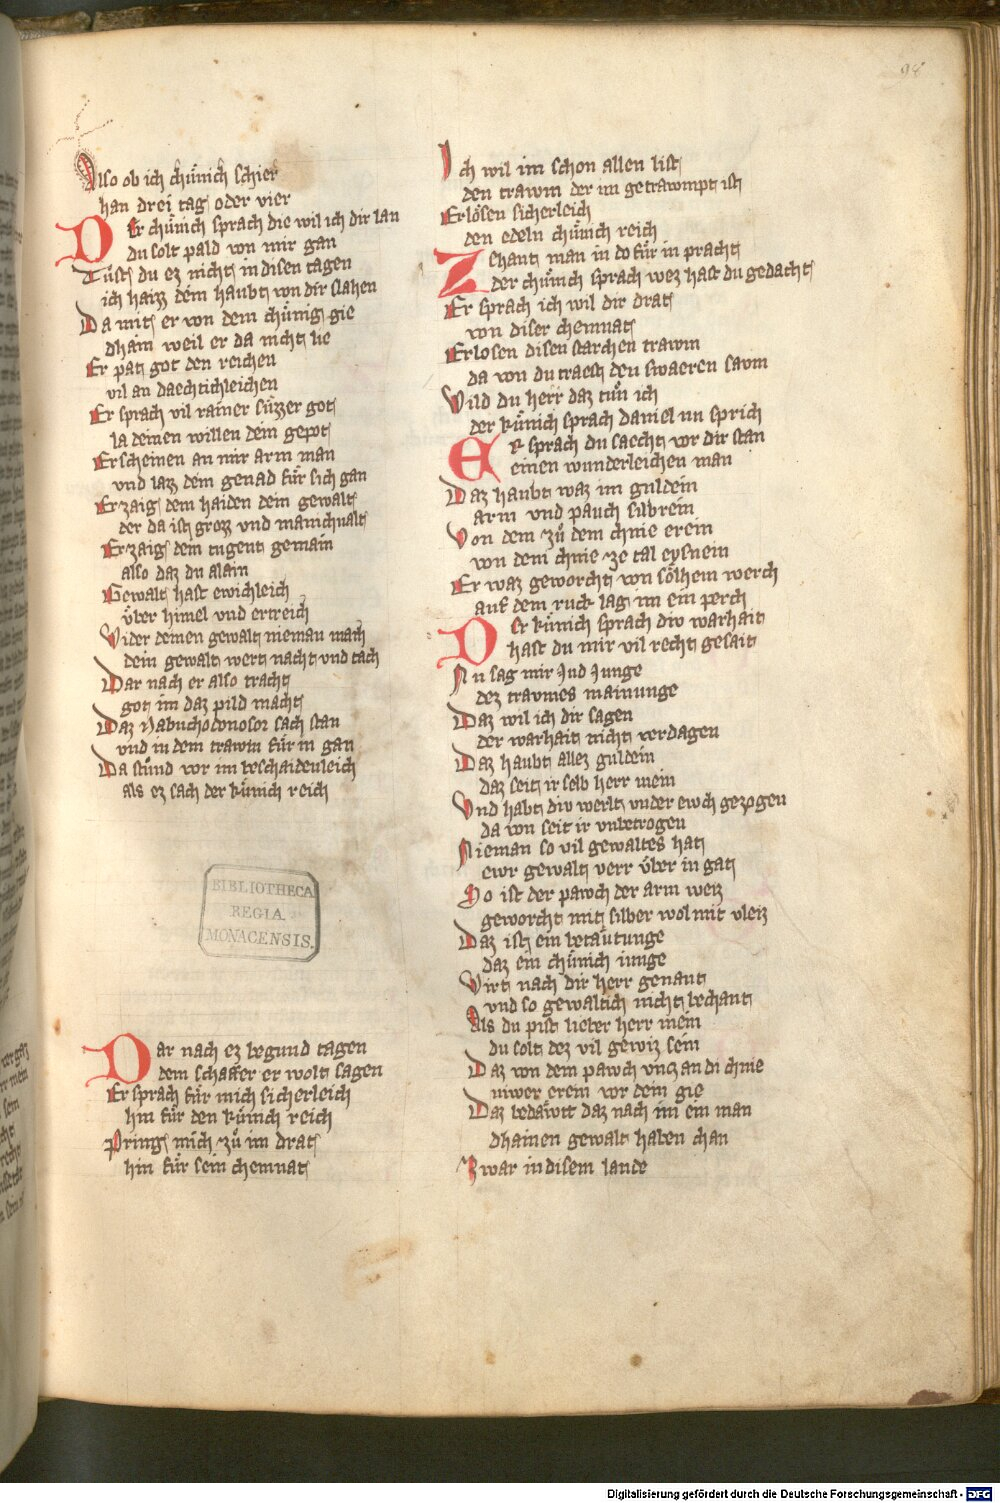 98
Also ob ich chuͤnich schier
han drei tag oder vier
Der chuͤnich sprach die wil ich dir lan
du solt pald von mir gan
Tuͤst du ez nicht in disen tagen
ich haizz dem haubt von dir slahen
Da mit er von dem chuͤnig gie
dhain weil er da nicht lie
Er pat got den reichen
vil an daechtichleichen
Er sprach vil rainer suͤzzer got
la deinen willen dein gepot
Erscheinen an mir arm man
vnd lazz dein genad fuͤr sich gan
Erzaig dem haiden dein gewalt
der da ist grozz vnd manichualt
Erzaig dein tugent gemain
also daz du alain
Gewalt hast ewichleich
uͤber himel vnd ertreich
Wider deinen gewalt nieman mach
dein gewalt wert nacht vnd tach
Dar nach er also tracht
got im daz pild macht
Daz Nabuchodonosor sach stan
vnd in dem trawm fuͤr in gan
Da stuͤnd vor im beschaidenleich
als ez sach der kuͤnich reich
BIBLIOTHECA
REGIA
MONACENSIS.
Dar nach ez begund tagen
dem schaffer er wolt sagen
Er sprach fuͤr mich sicherleich
hin fuͤr den kuͤnich reich
Pring mich zuͤ im drat
hin fuͤr sein chemnat
Ich wil im schon allen list
den trawm der im getrawmpt ist
Erloͤsen sicherleich
den edeln chuͤnich reich
Zehant man in do fuͤr in pracht
der chuͤnich sprach wez hast du gedacht
Er sprach ich wil dir drat
von diser chemnat
Erlosen disen starchen trawm
da von du traest den swaeren sawm
Wild du herr daz tuͤn ich
der kuͤnich sprach daniel nu sprich
Er sprach du saecht vor dir stan
einen wunderleichen man
Daz haubt waz im guldein
arm vnd pauch silbrein
Von dem zuͤ dem chnie erein
von dem chnie ze tal eysnein
Er waz geworcht von soͤlhem werch
auf dem ruck lag im ein perch
Der kuͤnich sprach div warhait
hast du mir vil recht gesait
Nu sag mir Jud Junge
dez traumes mainunge
Daz wil ich dir sagen
der warhait nicht verdagen
Daz haubt allez guldein
daz seit ir selb herr mein
Vnd habt div werlt vnder ewch gezogen
da von seit ir vnbetrogen
Nieman so vil gewaltes hat
ewr gewalt verr uͤber in gat
So ist der pawch der arm weiz
geworcht mit silber wol mit vleiz
Daz ist ein betaͤutunge
daz ein chuͤnich iunge
Wirt nach dir herr genant
vnd so gewaltich nicht bechant
Als du pist lieber herr mein
du solt dez vil gewiz sein
Daz von dem pawch vncz an di chnie
niwer erein vor dein gie
Daz bedaͤwtt daz nach im ein man
dhainen gewalt haben chan
Zwar in disem lande
Digitalisierung gefördert durch die Deutsche Forschungsgemeinschaft - DFG